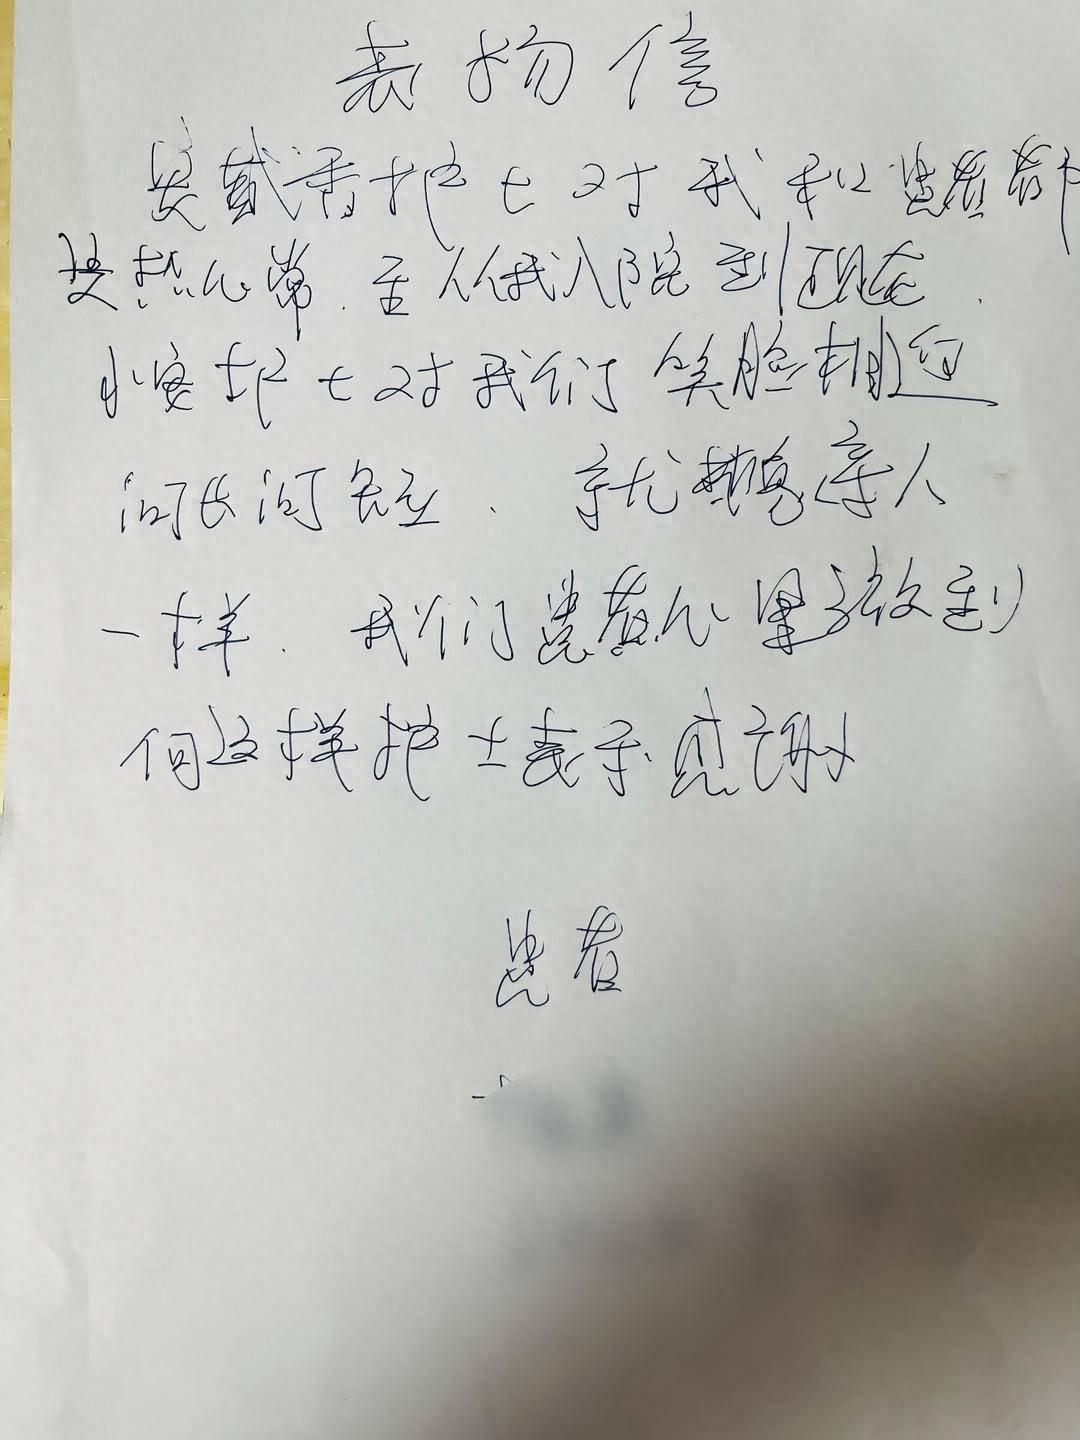 表扬信
安戴香护士对我和患者都
是热心常.主从我入院到现在.
小安护士对我们笑脸相迎
问长问短.就想亲人
一样.我们患者心里放到
向这样护士表示感谢
患者